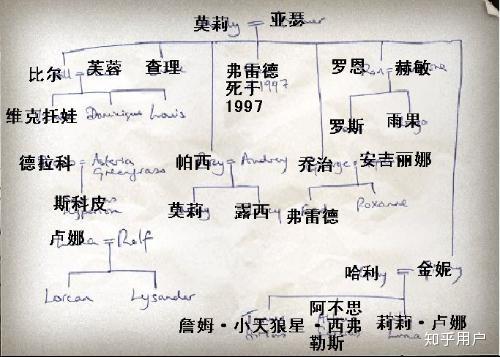 莫莉 = 亚瑟
比尔 芙蓉 查理 弗雷德 罗恩 赫敏
死于1997
1997
维克托娃 Dominique Louis 罗斯 雨果
德拉科 = Asteria 帕西 = Audrey 乔治 安吉丽娜
Greengrass
斯科皮 莫莉 露西 弗雷德 Roxanne
卢娜 = Rolf
哈利 = 金妮
Lorcan Lysander
詹姆·小天狼星 阿不思·西弗勒斯 莉莉·卢娜
知乎用户